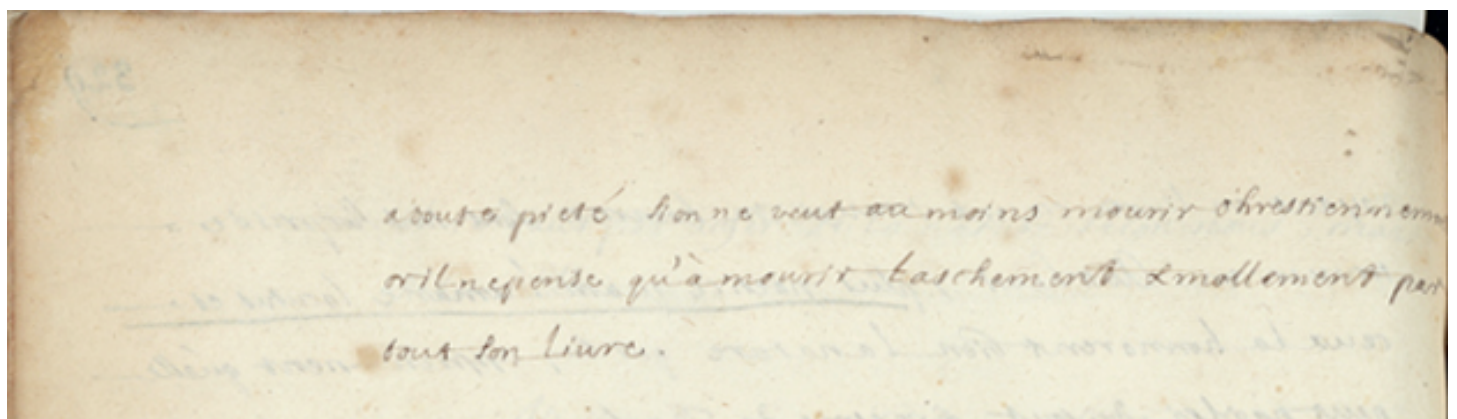 a toute pieté si on ne veut au moins mourir chrestiennem
or il ne pense qu'à mourir laschement & mollement par
tout son liure.